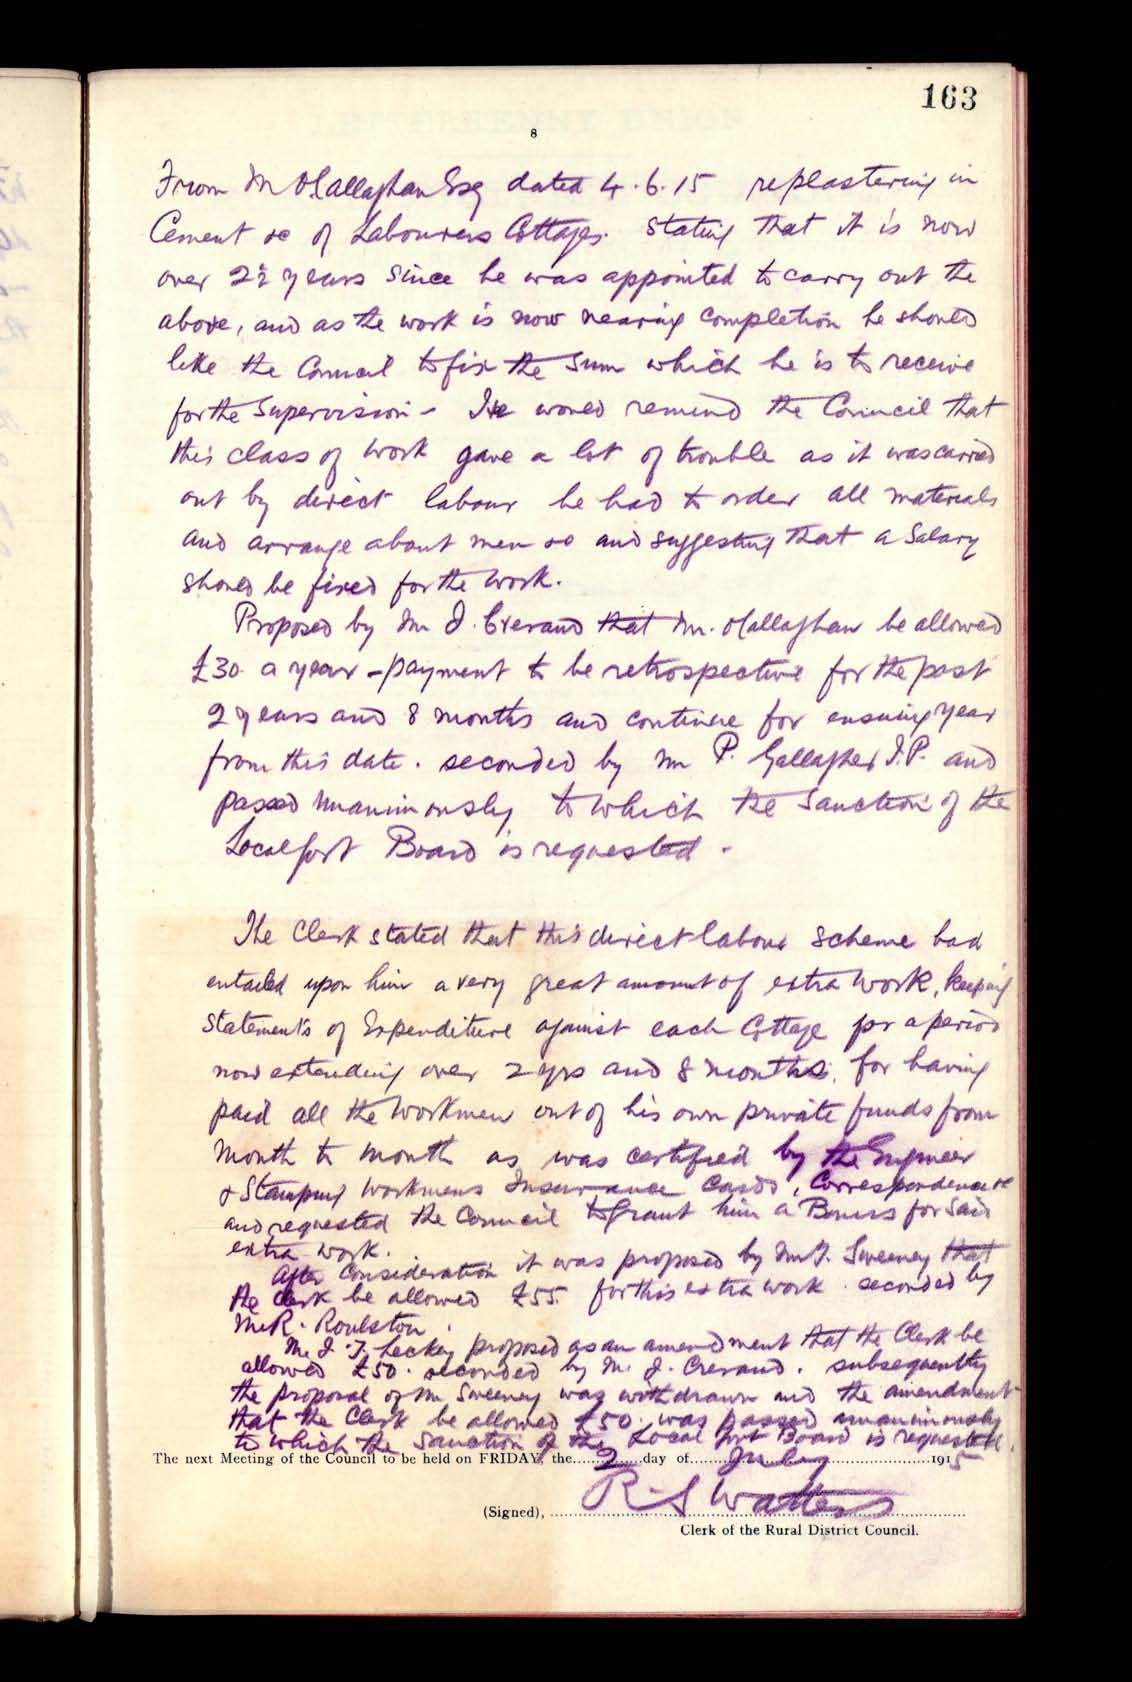 163
8
From Mr O'Callaghan Esq dated 4.6.15 replastering in
Cement &c of Labourers Cottages. Stating that it is now
over 2½ years since he was appointed to carry out the
above, and as the work is now nearing completion he should
like the Council to fix the Sum which he is to receive
for the Supervision - He would remind the Council that
this class of work gave a lot of trouble as it was carried
out by direct labour he had to order all materials
and arrange about men &c and suggesting that a Salary
should be fixed for the work.
Proposed by Mr J. Crerand that Mr. O'Callaghan be allowed
£30 a year - payment to be retrospective for the past
2 years and 8 months and continue for ensuing year
from this date. seconded by Mr P. Gallagher J.P. and
passed Unanimously to which the Sanction of the
Local Govt Board is requested.
The Clerk stated that this direct labour scheme had
entailed upon him a very great amount of extra work, keeping
Statements of Expenditure against each Cottage for a period
now extending over 2 yrs and 8 months, for having
paid all the workmen out of his own private funds from
Month to month as was certified by the Engineer
& Stamping Workmens Insurance Cards, Correspondence &c
and requested the Council to Grant him a Bonus for Said
extra work.
After Consideration it was proposed by Mr J. Sweeney that
the Clerk be allowed £55 for this extra work seconded by
Mr R. Roulston.
Mr J. T. Leckey proposed as an amendment that the Clerk be
allowed £50. seconded by Mr J. Crerand. subsequently
the proposal of Mr Sweeney was withdrawn and the amendment
that the Clerk be allowed £50 was passed unanimously
to which the Sanction of the Local Govt Board is requested.
The next Meeting of the Council to be held on FRIDAY, the 2 day of July 1915
(Signed), R. S Watters
Clerk of the Rural District Council.